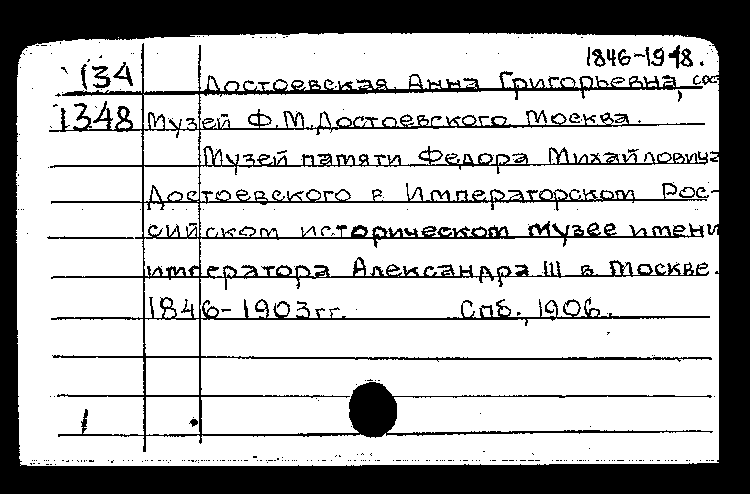 1846-1918.
134 Достоевская Анна Григорьевна, сос
1348 Музей Ф.М.Достоевского Москва.
Музей памяти Федора Михайловича
Достоевского в Императорском Рос-
сийском историческом музее имени
императора Александра III в Москве.
1846-1903гг. Спб., 1906.
1